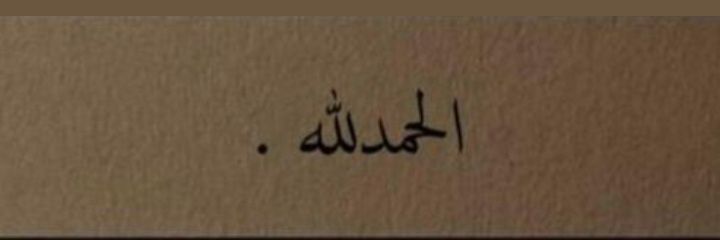 الحمدلله .